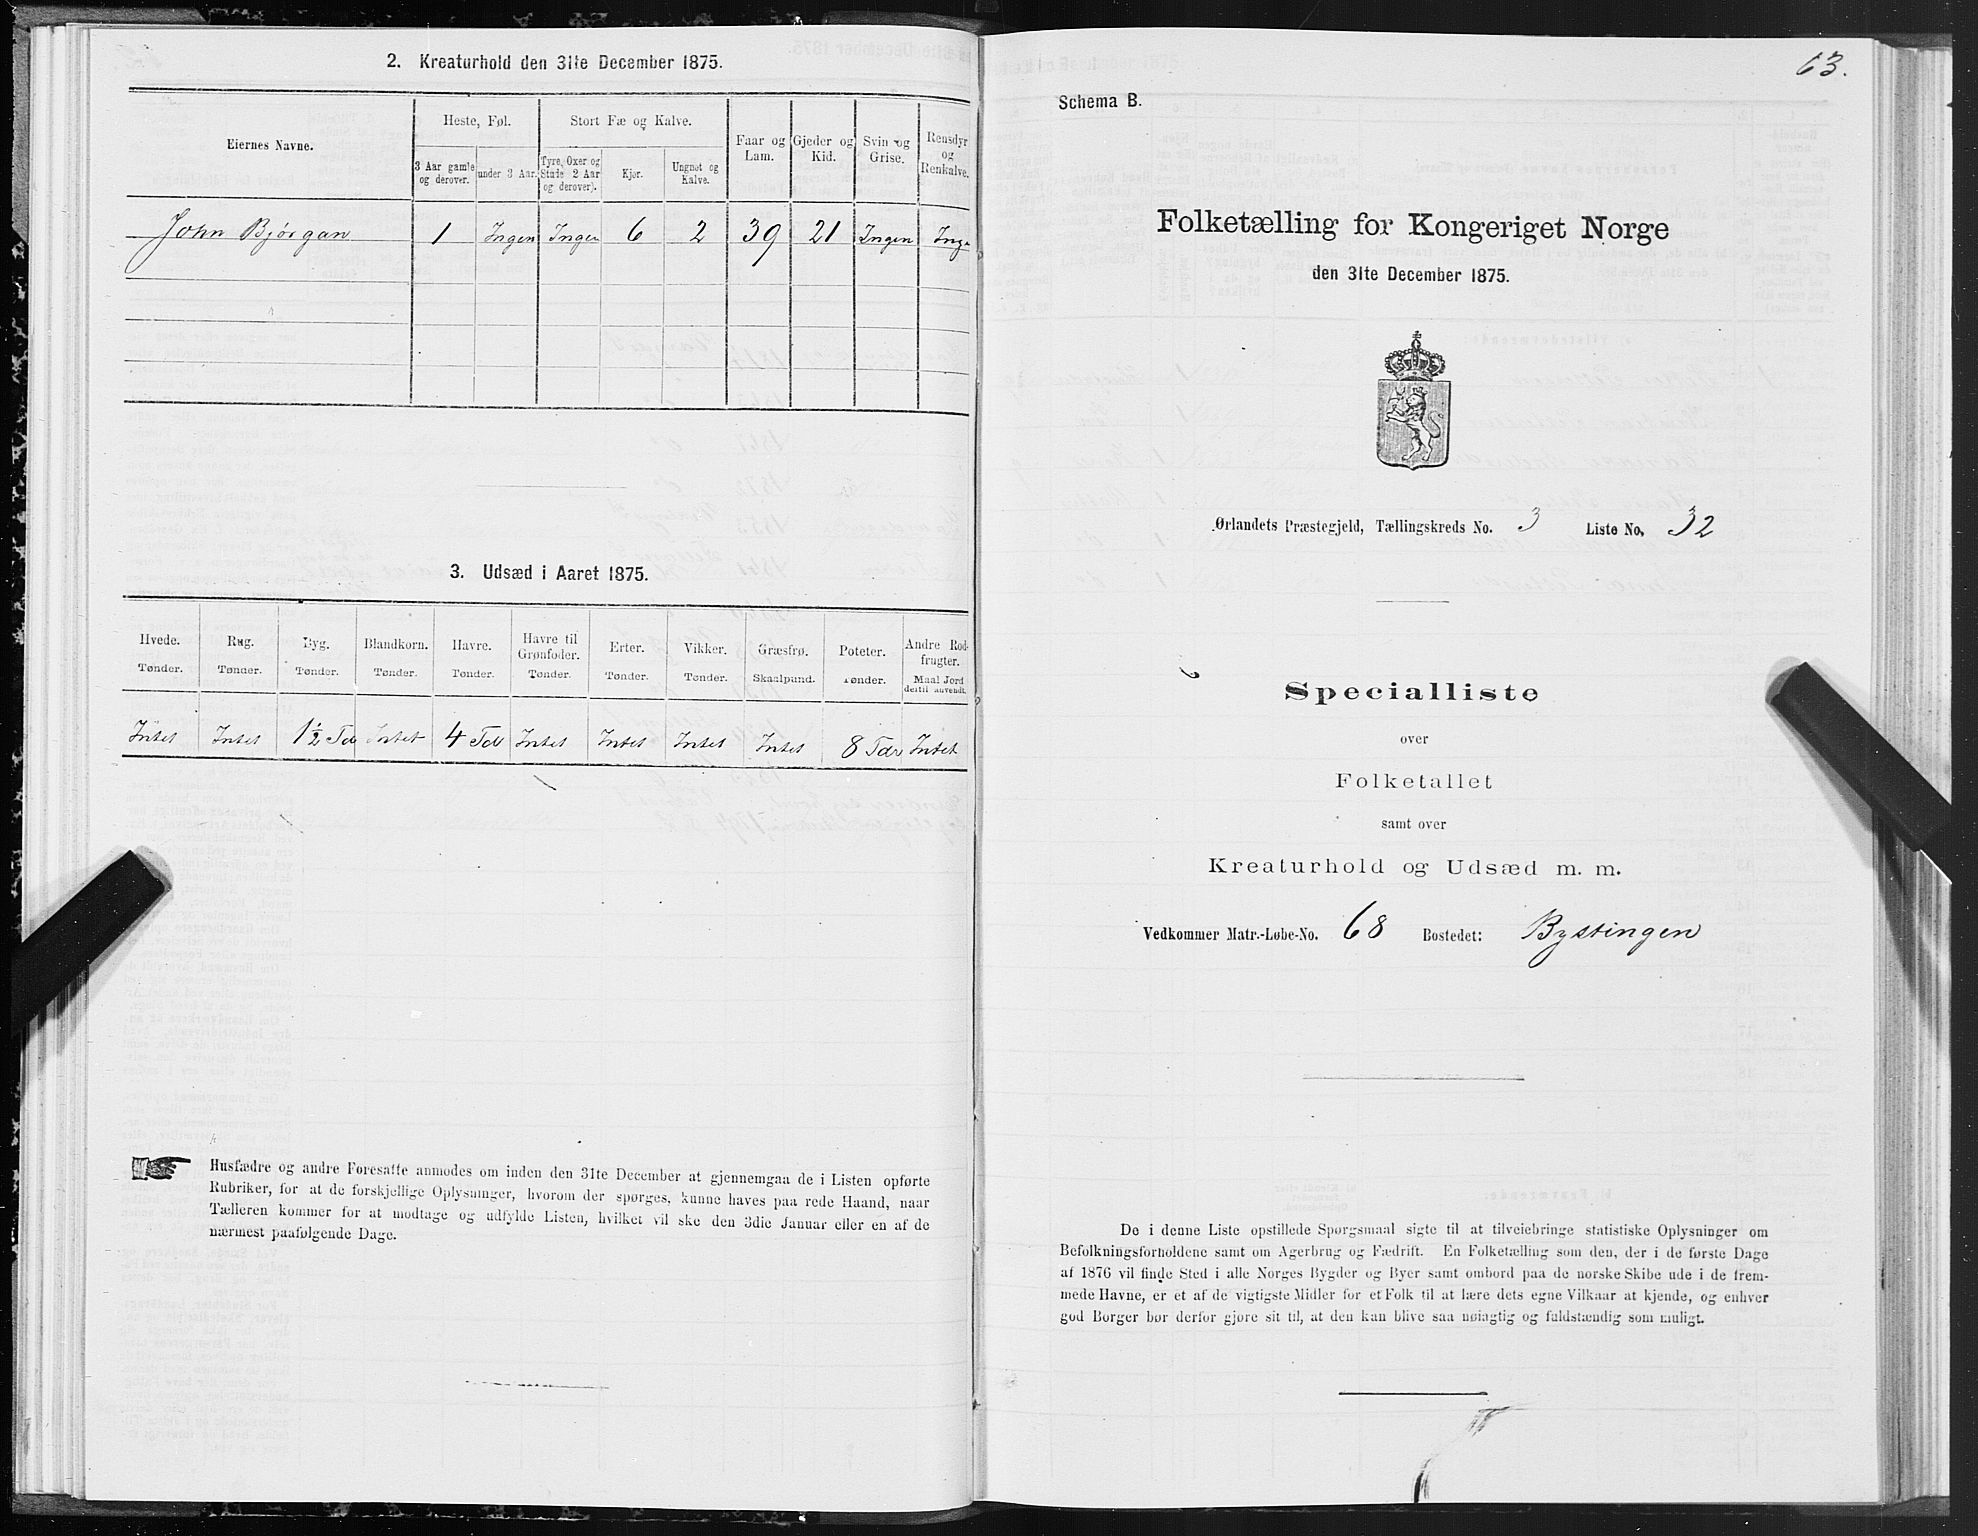 2. Kreaturhold den 31te December 1875.
Eiernes Navne.
Heste, Føl.
Stort Fæ og Kalve.
Faar og Lam.
Gjeder og Kid.
Svin og Grise.
Rensdyr og Renkalve.
3 Aar gamle og derover.
under 3 Aar.
Tyre, Oxer og Stude 2 Aar og derover).
Kjør.
Ungnøt og Kalve.
John Bjørgan 1 Ingen Ingen 6 2 39 21 Ingen Inge
3. Udsæd i Aaret 1875.
Hvede. Rug. Byg. Blandkorn. Havre. Havre til Grønfoder. Erter. Vikker. Græsfrø. Poteter. Andre Rodfrugter.
Tønder. Tønder. Tønder. Tønder. Tønder. Tønder. Tønder. Tønder. Skaalpund. Tønder. Maal Jord dertil anvendt.
Intet Intet 1½ Td Intet 4 Tdr Intet Intet Intet Intet 8 Tdr Intet
Husfædre og andre Foresatte anmodes om inden den 31te December at gjennemgaa de i Listen opførte
Rubriker, for at de forskjellige Oplysninger, hvorom der spørges, kunne haves paa rede Haand, naar
Tælleren kommer for at modtage og udfylde Listen, hvilket vil ske den 3die Januar eller en af de
nærmest paafølgende Dage.
63.
Schema B.
Folketælling for Kongeriget Norge
den 31te December 1875.
Ørlandets Præstegjeld, Tællingskreds No. 3 Liste No. 32
Specialliste
over
Folketallet
samt over
Kreaturhold og Udsæd m. m.
Vedkommer Matr.-Løbe-No. 68 Bostedet: Bystingen
De i denne Liste opstillede Spørgsmaal sigte til at tilveiebringe statistiske Oplysninger om
Befolkningsforholdene samt om Agerbrug og Fædrift. En Folketælling som den, der i de første Dage
af 1876 vil finde Sted i alle Norges Bygder og Byer samt ombord paa de norske Skibe ude i de frem-
mede Havne, er et af de vigtigste Midler for et Folk til at lære dets egne Vilkaar at kjende, og enhver
god Borger bør derfor gjøre sit til, at den kan blive saa nøiagtig og fuldstændig som muligt.